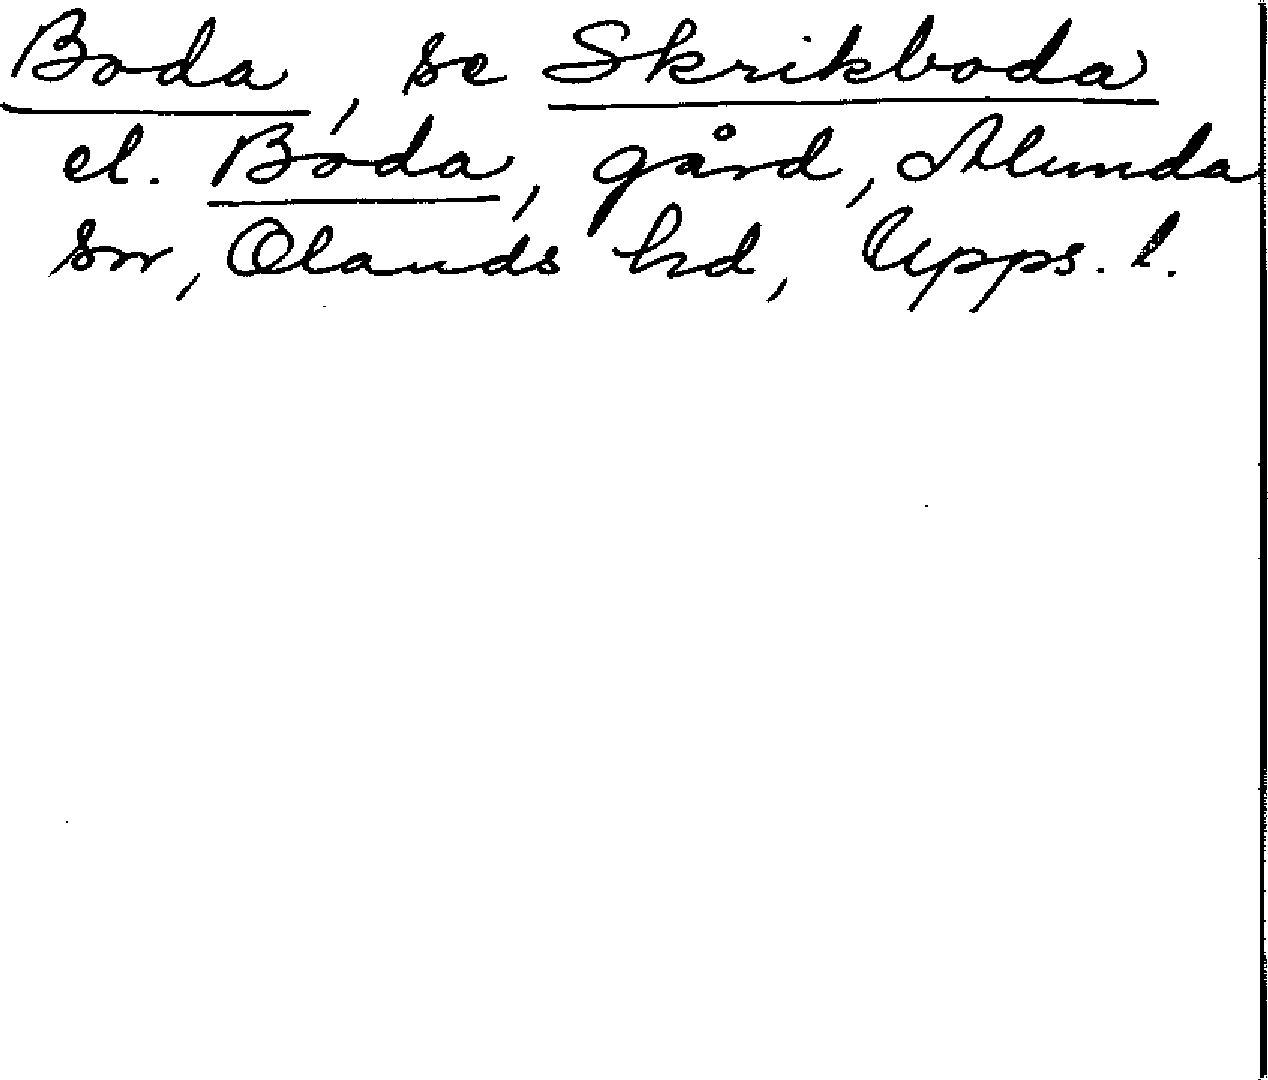 Boda, se Skrikboda
el. Boda, gård, Alunda
sn, Olands hd, Upps. l.